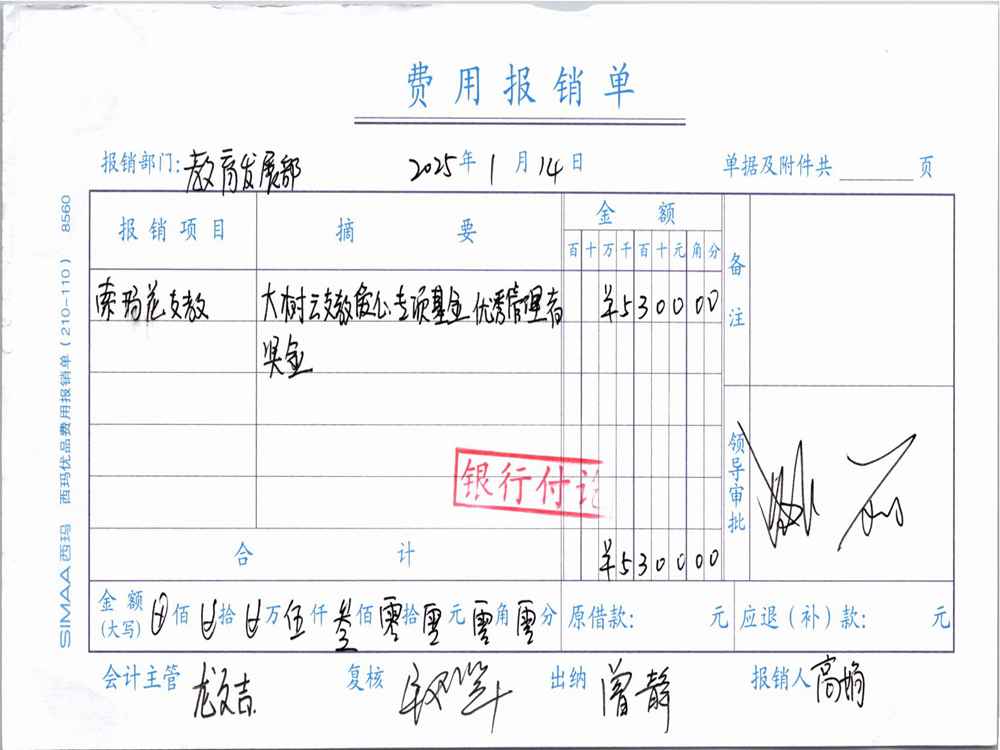 费用报销单
报销部门:教育发展部 2025年1月14日 单据及附件共 页
报销项目 摘要 金额 备注
百十万千百十元角分
索玛花支教 大树云支教爱心专项基金优秀管理者 ¥530000
奖金
银行付讫
领导审批
合计 ¥530000
金额(大写) 佰 拾 万伍仟叁佰零拾零元零角零分 原借款: 元 应退(补)款: 元
会计主管 龙文吉 复核 出纳 曾静 报销人 高娟
SIMAA西玛 西玛优品费用报销单(210-110) 8560